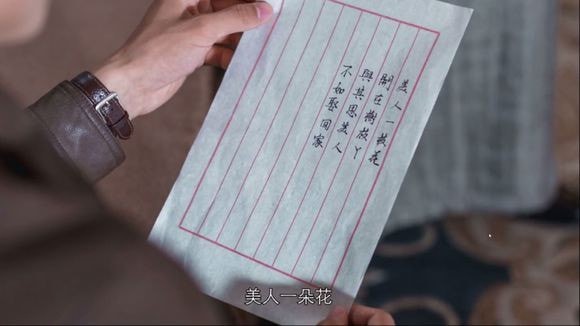 美人一枝花
開在樹枝丫
與其思美人
不如娶回家
美人一朵花